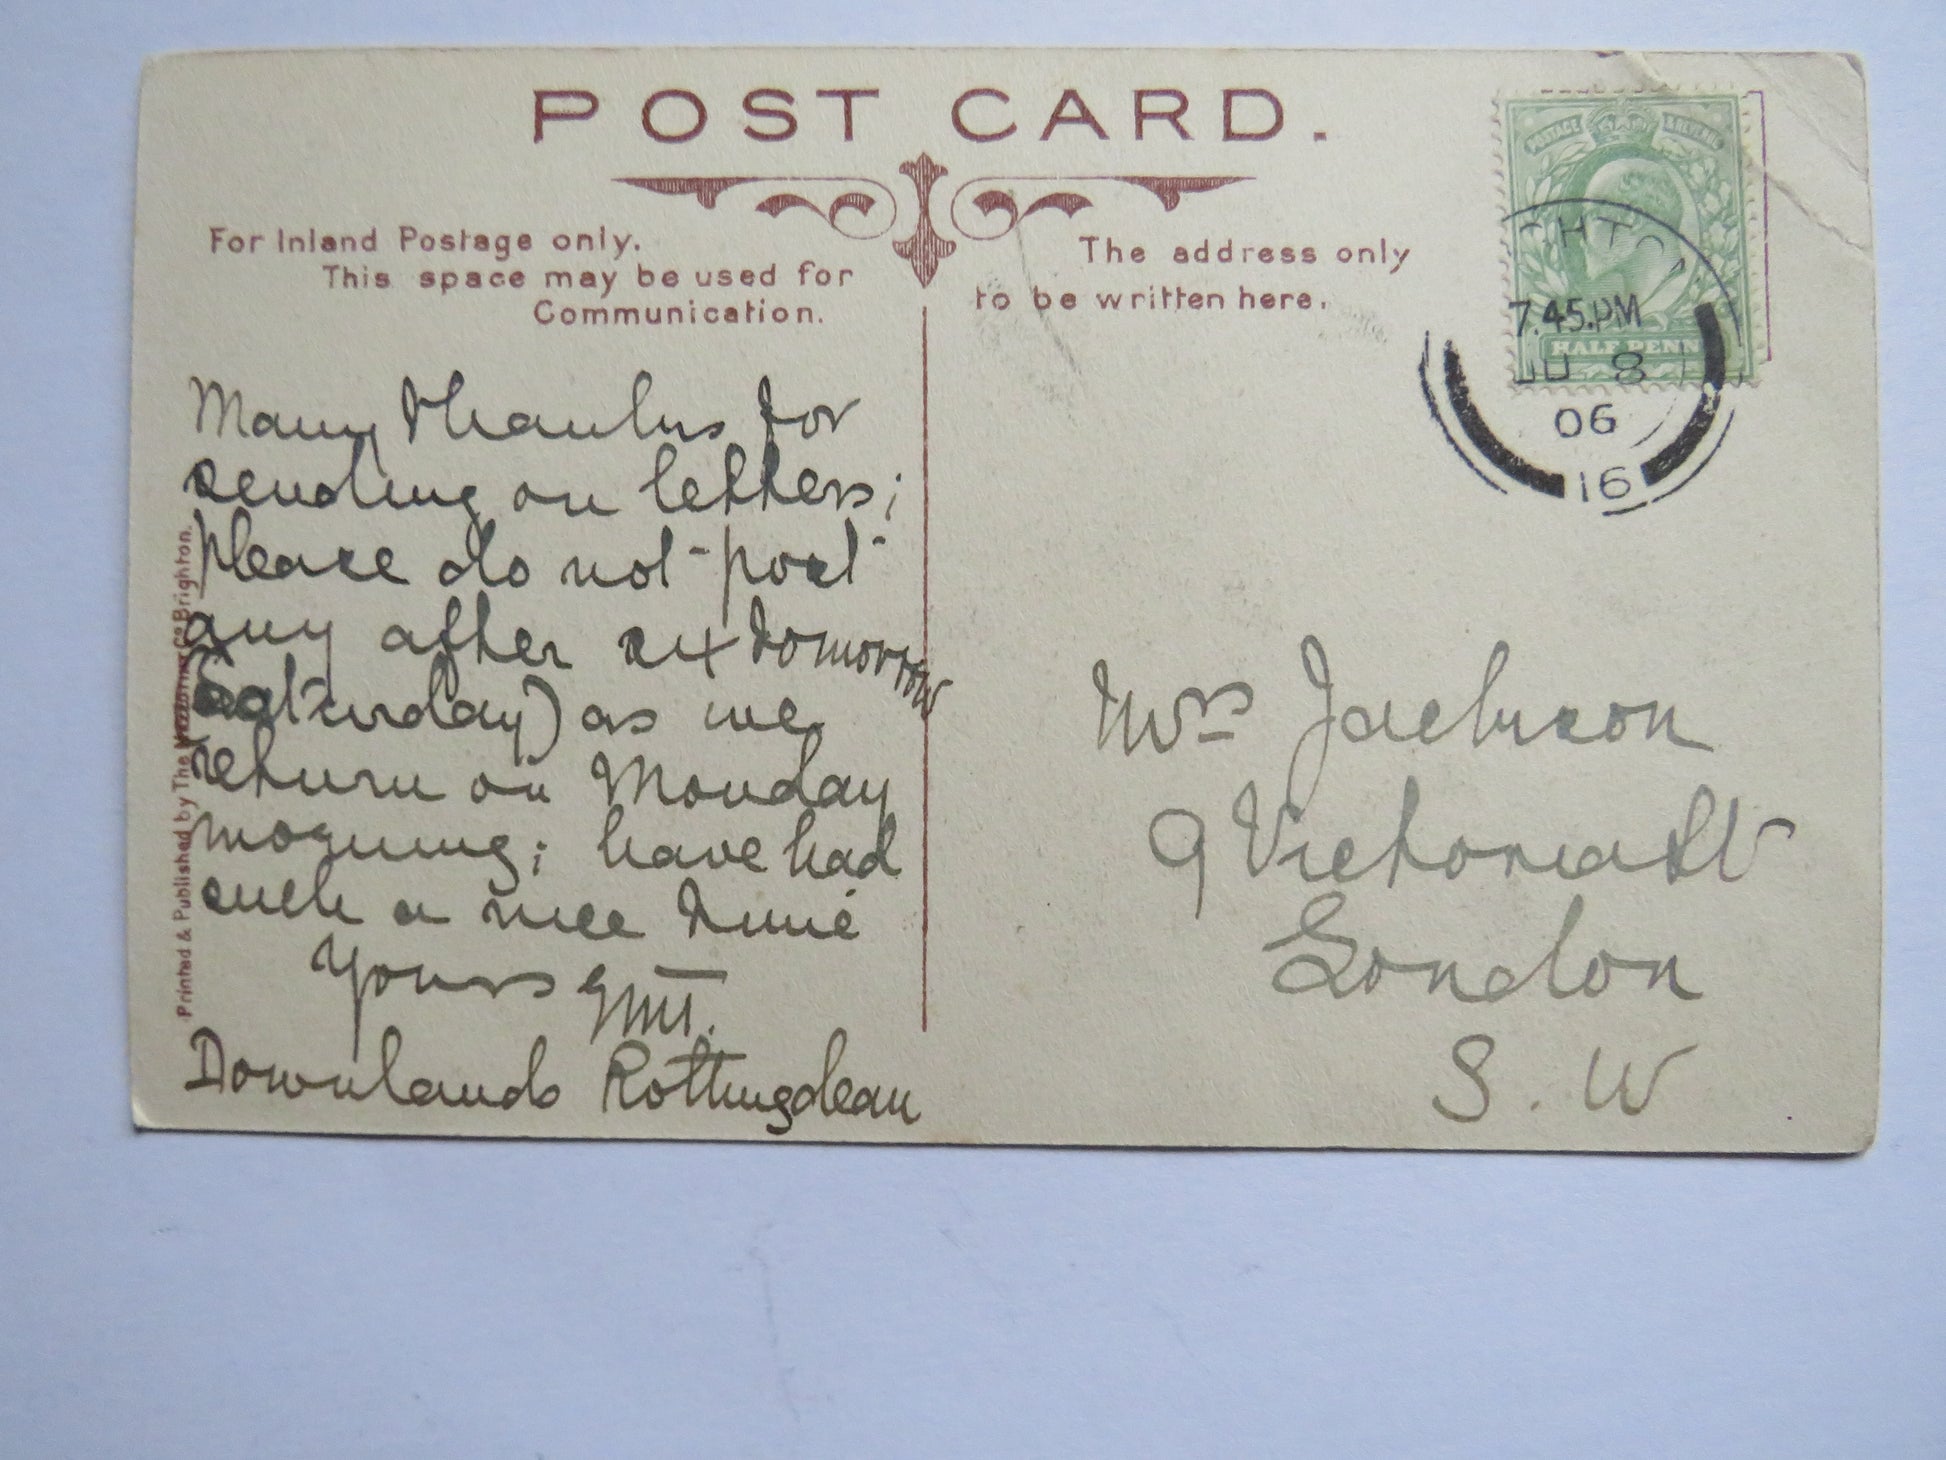 POST CARD.
For Inland Postage only.
This space may be used for
Communication.
The address only
to be written here.
POSTAGE & REVENUE
HALF PENN
GHTO
7.45.PM
JU 8
06
16
Many thanks for
sending on letters;
please do not post
any after six tomorrow
Saturday) as we
return on Monday
morning; have had
such a nice time
Yours
Downlands Rottingdean
Mrs Jackson
9 Victoria St
London
S. W
Printed & Published by The Co Brighton.